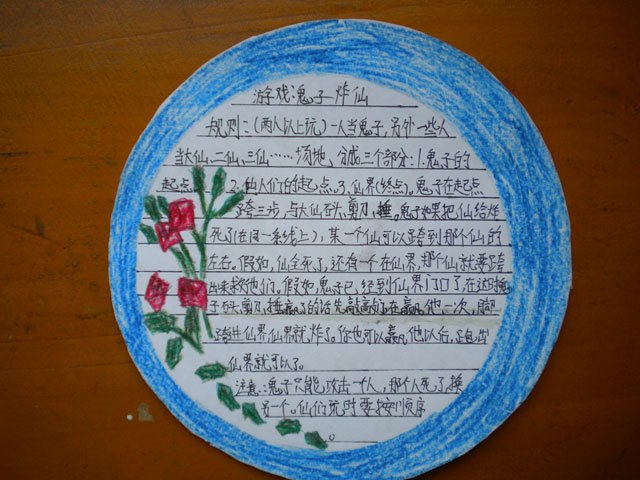 游戏:鬼子炸仙
规则:(两人以上玩)一人当鬼子,另外一些人
当大仙、二仙、三仙……场地,分成三个部分:1.鬼子的
起点 2.仙人们的起点.3.仙界(终点)。鬼子在起点
跨三步,与大仙石头剪刀,捶,鬼子如果把仙给炸
死了(在同一条线上),某一个仙可以跨到那个仙的
左右。假如,仙全死了,还有一个在仙界,那个仙就要跨
出来救他们。假如,鬼子已经到仙界门口了,在这时捶
子石头剪刀,捶赢了的话先敲敲好,在赢他一次,脚
跨进仙界,仙界就炸了。你也可以赢他以后,跑出
仙界就可以了。
注意:鬼子只能攻击一人,那个人死了,换
另一个。仙们玩时要按顺序
。